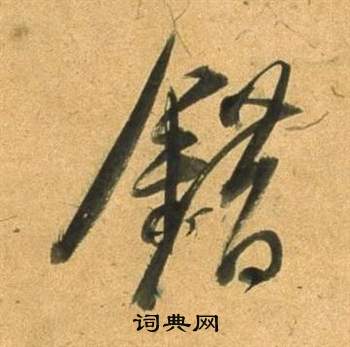 錯
词典网